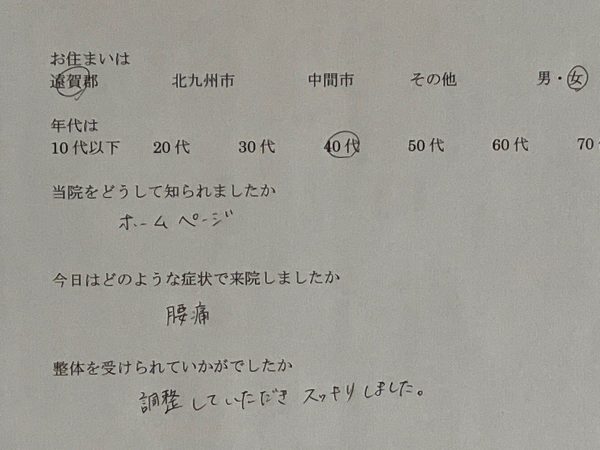 お住まいは
遠賀郡 北九州市 中間市 その他 男・女
年代は
10代以下 20代 30代 40代 50代 60代 70
当院をどうして知られましたか
ホームページ
今日はどのような症状で来院しましたか
腰痛
整体を受けられていかがでしたか
調整していただきスッキリしました。